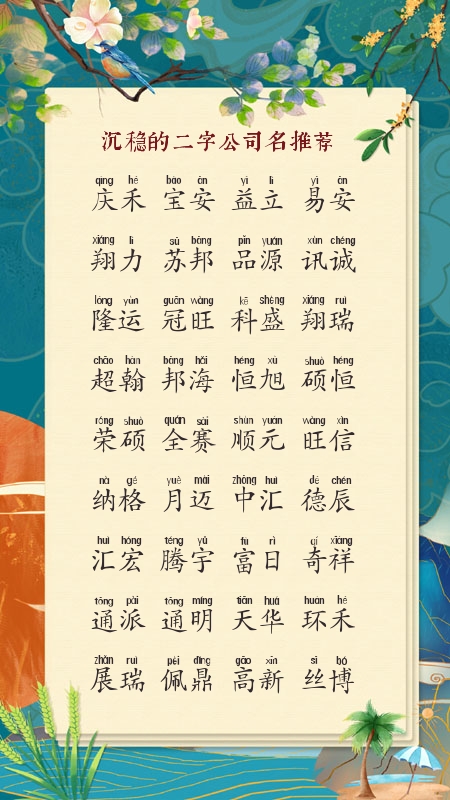 沉稳的二字公司名推荐
qìng hé bǎo ān yì lì yì ān
庆禾 宝安 益立 易安
xiáng lì sū bāng pǐn yuán xùn chéng
翔力 苏邦 品源 讯诚
lóng yùn guān wàng kē shèng xiáng ruì
隆运 冠旺 科盛 翔瑞
chāo hàn bāng hǎi héng xù shuò héng
超翰 邦海 恒旭 硕恒
róng shuò quán sài shùn yuán wàng xìn
荣硕 全赛 顺元 旺信
nà gé yuè mài zhōng huì dé chén
纳格 月迈 中汇 德辰
huì hóng téng yǔ fù rì qí xiáng
汇宏 腾宇 富日 奇祥
tōng pài tōng míng tiān huá huán hé
通派 通明 天华 环禾
zhǎn ruì pèi dǐng gāo xīn sī bó
展瑞 佩鼎 高新 丝博